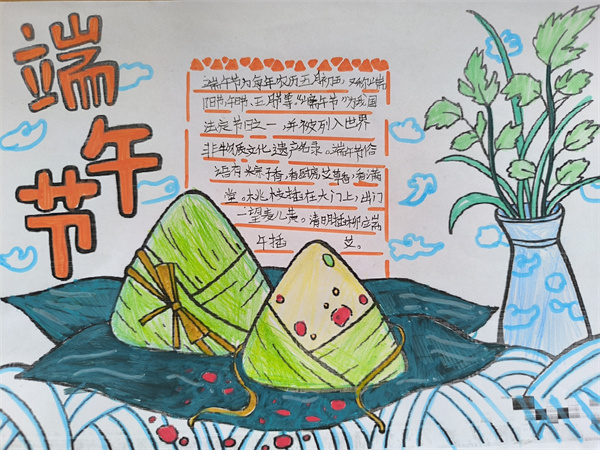 端午节
端午节为每年农历五月初五，又称端
阳节、午节、五月节等。"端午节"为我国
法定节日之一，并被列入世界
非物质文化遗产名录。端午节恰
有米粽子香，香厨房。艾草香，香满
堂。桃枝插在大门上，出门
一望麦儿黄。清明插柳，端
午插 艾。